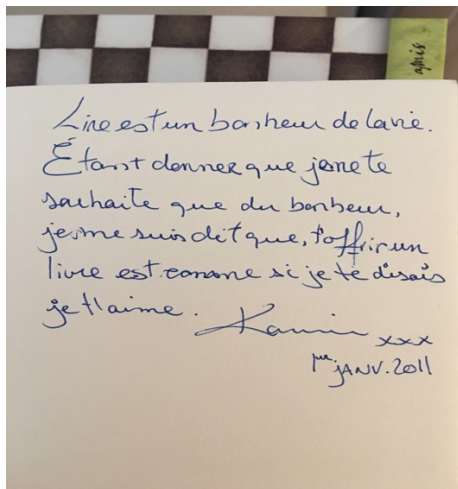 amis
Lire est un bonheur de la vie.
Étant donner que je ne te
souhaite que du bonheur,
je me suis dit que, t'offrir un
livre est comme si je te disais
je t'aime.
xxx
1er JANV. 2011